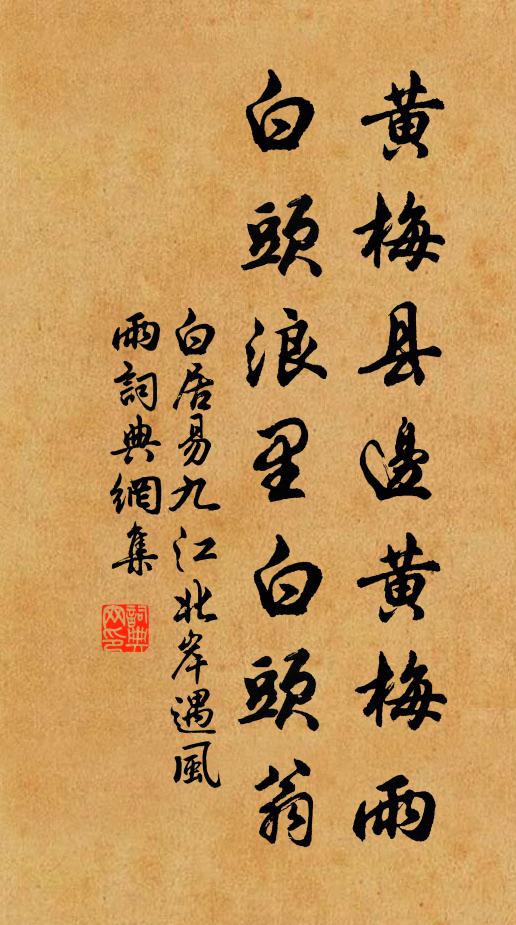 黄梅县邊黄梅雨
白頭浪里白頭翁
白居易九江北岸遇風
雨詞典網集
詞典
网印